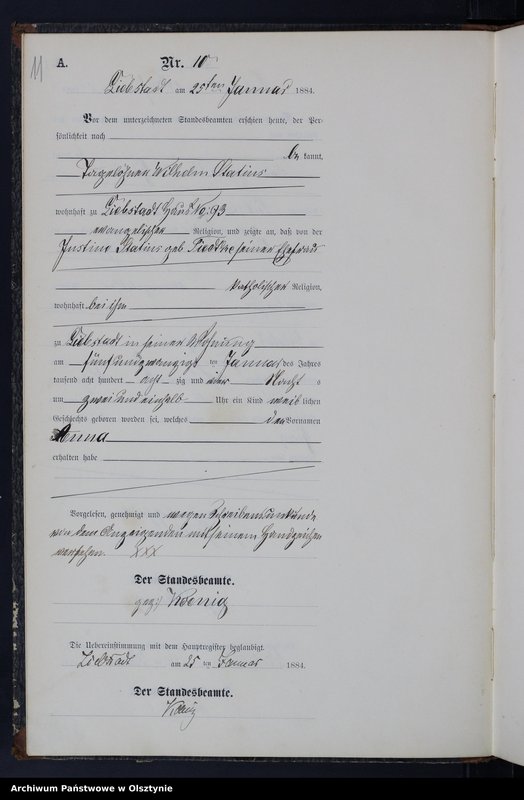 11
A.
Nr. 10
Liebstadt am 25ten Januar 1884.
Vor dem unterzeichneten Standesbeamten erschien heute, der Per-
sönlichkeit nach
be kannt,
Tagelöhner Wilhelm Statius
wohnhaft zu Liebstadt Haus No. 93
evangelischer Religion, und zeigte an, daß von der
Justine Statius geb. seiner Ehefrau
katholischer Religion,
wohnhaft bei ihm
zu Liebstadt in seiner Wohnung
am fünfundzwanzigst ten Januar des Jahres
tausend acht hundert acht zig und vier Nachts
um zwei und einhalb Uhr ein Kind weib lichen
Geschlechts geboren worden sei, welches den Vornamen
Anna
erhalten habe
Vorgelesen, genehmigt und wegen Schreibensunkunde
von dem Anzeigenden mit seinem Handzeichen
versehen. XXX
Der Standesbeamte.
gez.) Koenig
Die Uebereinstimmung mit dem Hauptregister beglaubigt.
Liebstadt am 25 ten Januar 1884.
Der Standesbeamte.
Koenig
Archiwum Państwowe w Olsztynie